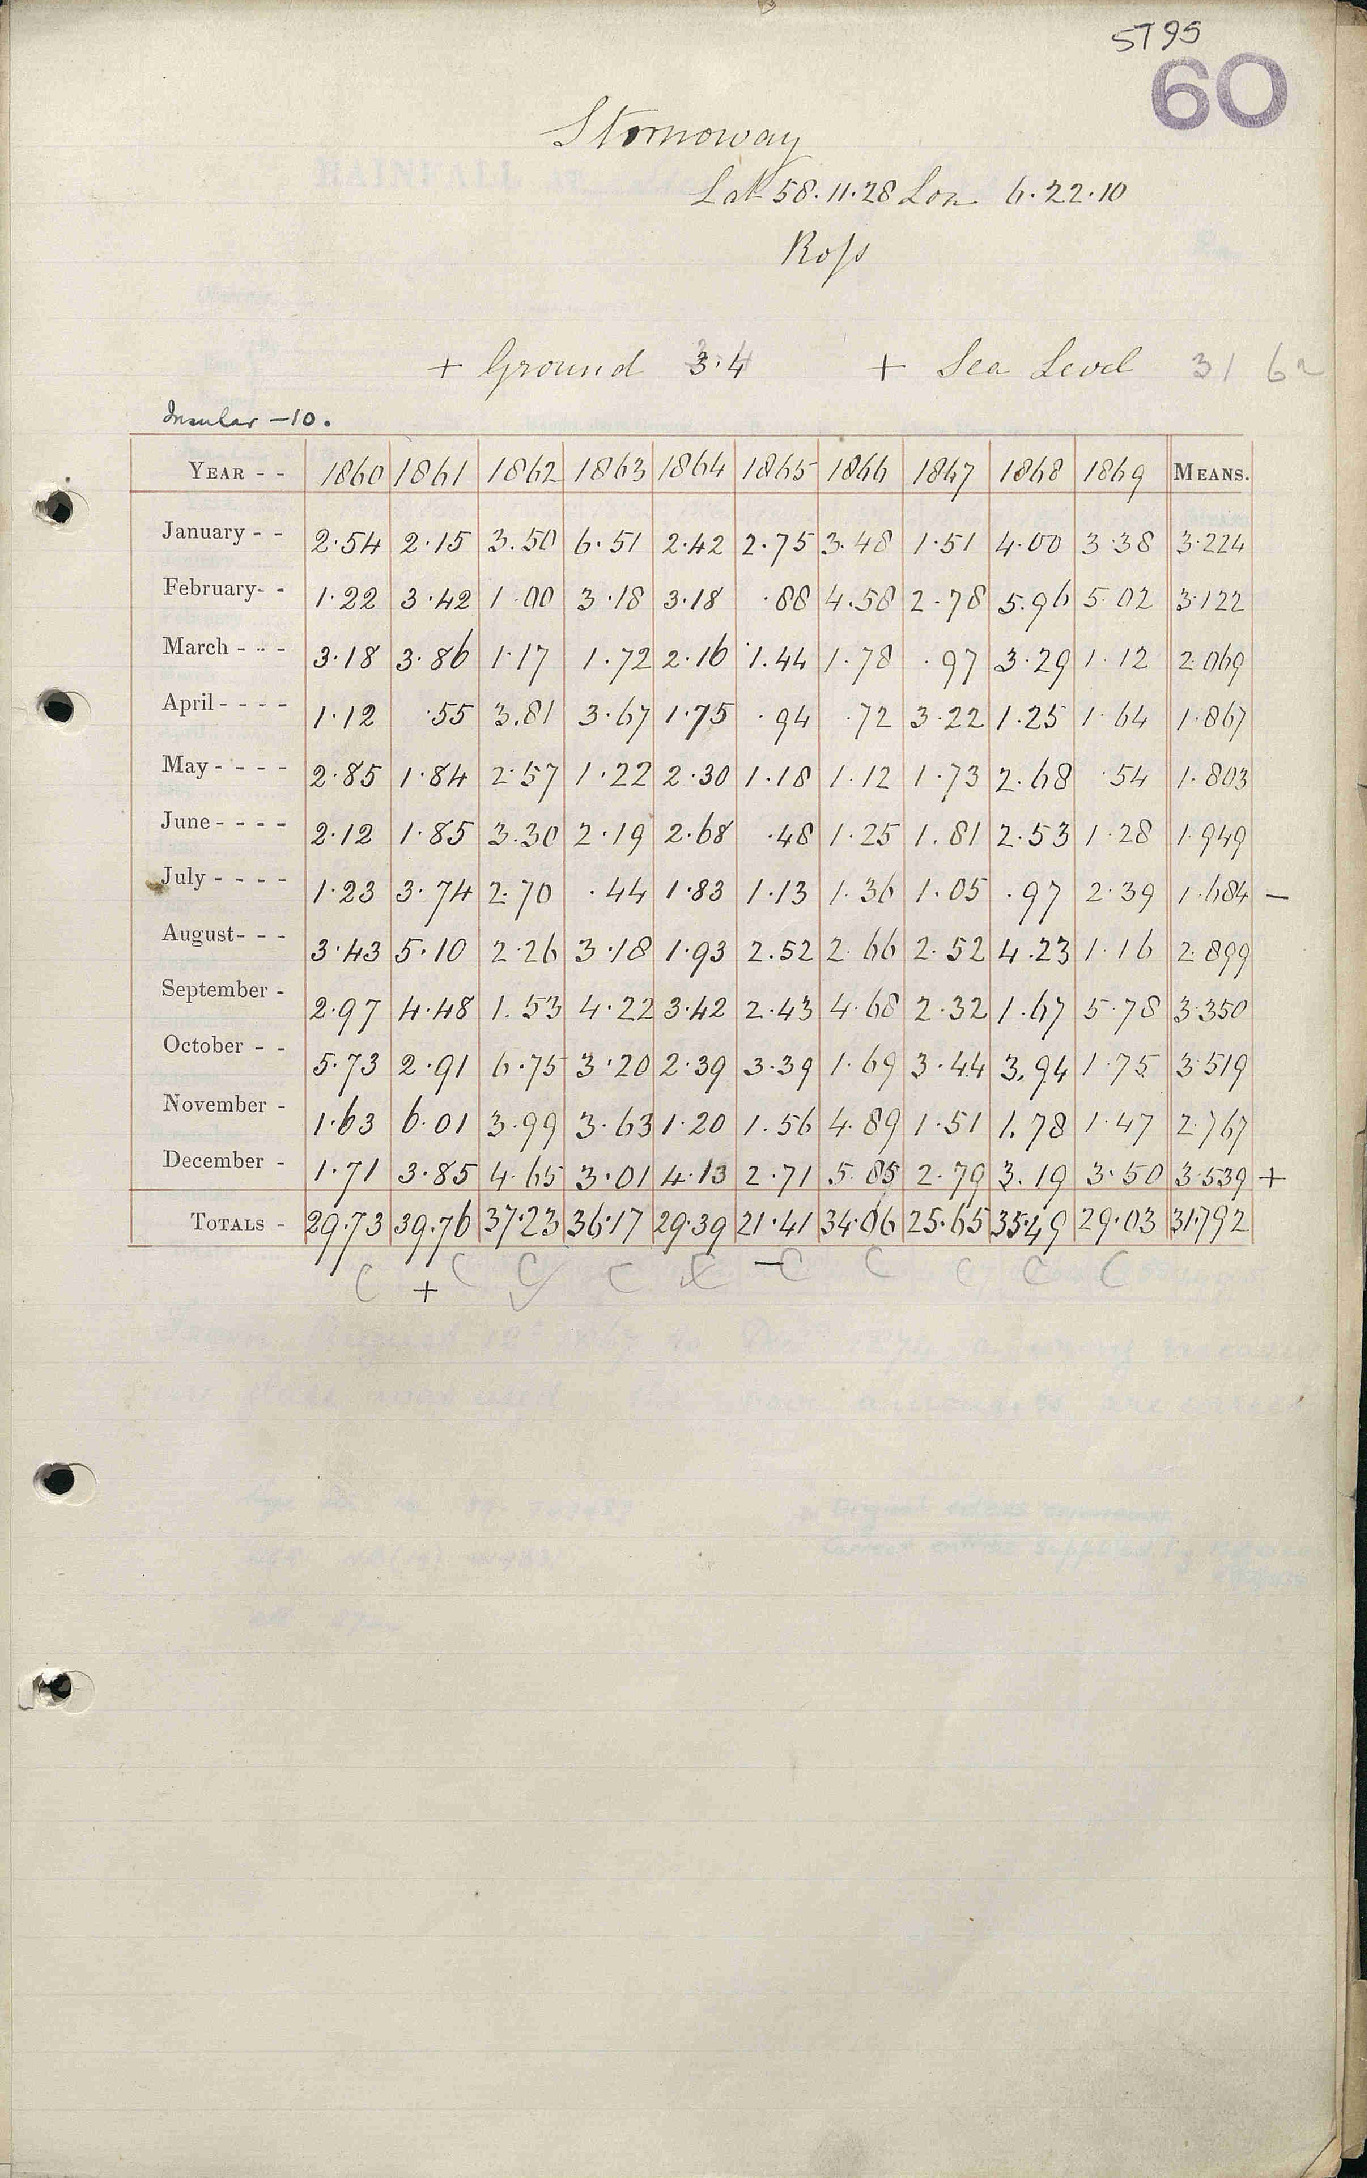 5795
60
Stornoway
Lat 58.11.28 Lon 6.22.10
Ross
+ Ground 3.4 + Sea Level 31
Insular -10.
YEAR - - 1860 1861 1862 1863 1864 1865 1866 1867 1868 1869 MEANS.
January - - 2.54 2.15 3.50 6.51 2.42 2.75 3.48 1.51 4.00 3.38 3.224
February- - 1.22 3.42 1.00 3.18 3.18 .88 4.58 2.78 5.96 5.02 3.122
March - - - 3.18 3.86 1.17 1.72 2.16 1.44 1.78 .97 3.29 1.12 2.069
April - - - - 1.12 .55 3.81 3.67 1.75 .94 .72 3.22 1.25 1.64 1.867
May - - - - 2.85 1.84 2.57 1.22 2.30 1.18 1.12 1.73 2.68 .54 1.803
June - - - - 2.12 1.85 3.30 2.19 2.68 .48 1.25 1.81 2.53 1.28 1.949
July - - - - 1.23 3.74 2.70 .44 1.83 1.13 1.36 1.05 .97 2.39 1.684 -
August- - - 3.43 5.10 2.26 3.18 1.93 2.52 2.66 2.52 4.23 1.16 2.899
September - 2.97 4.48 1.53 4.22 3.42 2.43 4.68 2.32 1.67 5.78 3.350
October - - 5.73 2.91 6.75 3.20 2.39 3.39 1.69 3.44 3.94 1.75 3.519
November - 1.63 6.01 3.99 3.63 1.20 1.56 4.89 1.51 1.78 1.47 2.767
December - 1.71 3.85 4.65 3.01 4.13 2.71 5.85 2.79 3.19 3.50 3.539 +
TOTALS - 29.73 39.76 37.23 36.17 29.39 21.41 34.06 25.65 35.49 29.03 31.792
C + C C C C - C C C C C